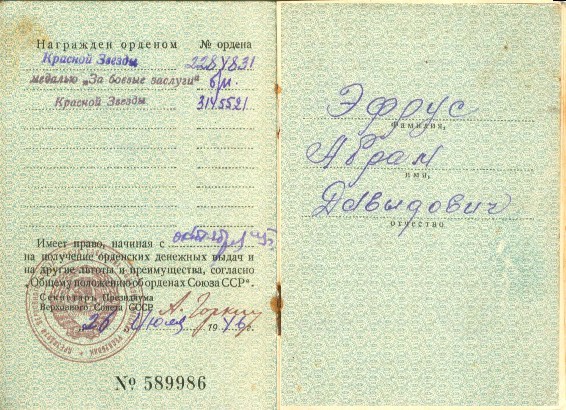 Награжден орденом № ордена
Красной Звезды 2284831
медалью „За боевые заслуги" б/м.
Красной Звезды 3145521
Имеет право, начиная с
на получение орденских денежных выдач и
на другие льготы и преимущества, согласно
„Общему положению об орденах Союза ССР".
Секретарь Президиума
Верховного Совета СССР А. Горкин
26 июля 1946 г.
№ 589986
Эфрус
Фамилия,
Абрам
имя,
Давыдович
отчество